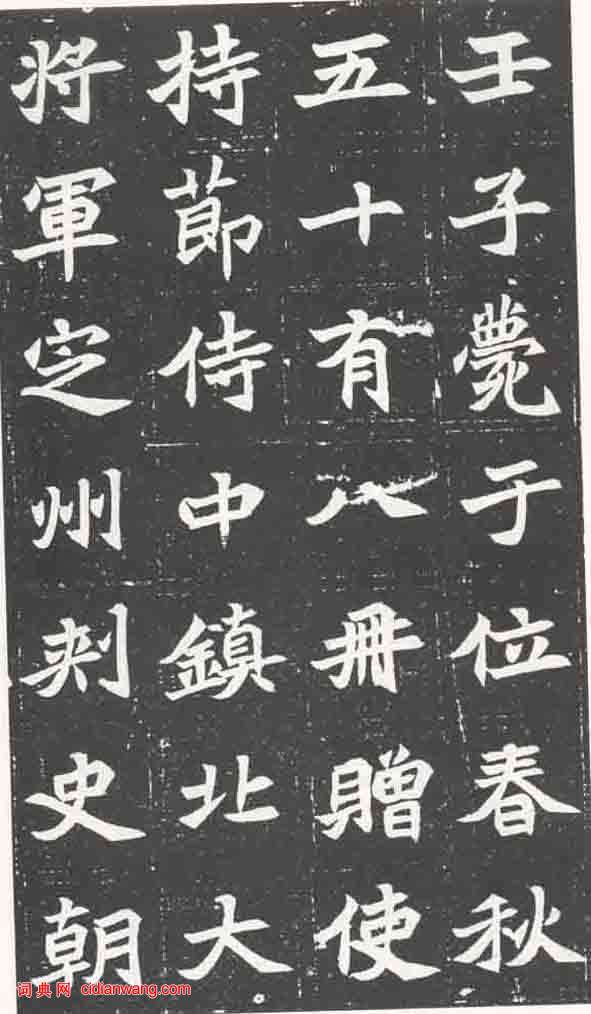 壬子薨于位春秋
五十有八冊贈使
持節侍中鎮北大
將軍定州刺史朝
词典网 cidianwang.com